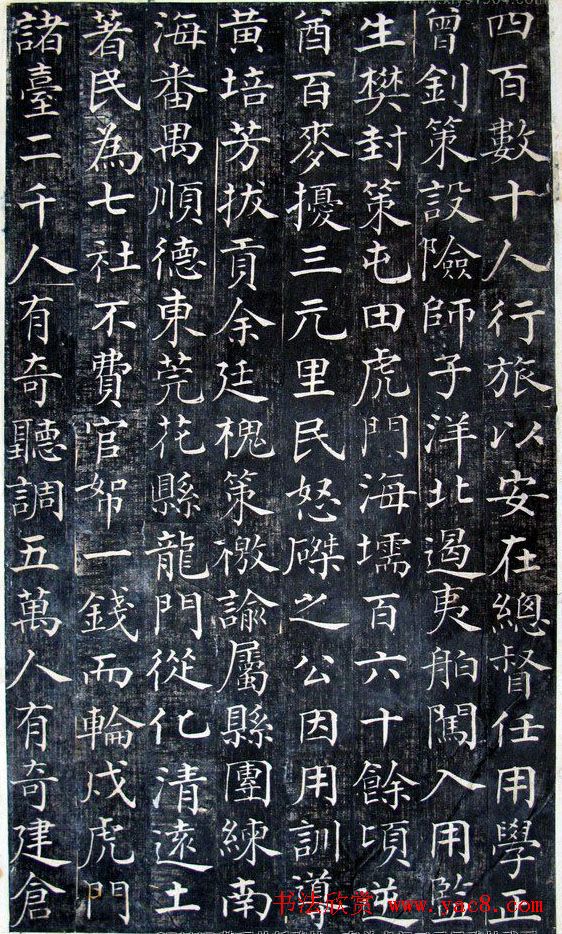 四百數十人行旅以安在總督任用學正
曾釗策設險師子洋北遏夷舶闖入用監
生樊封策屯田虎門海壖百六十餘頃逆
酋百麥擾三元里民怒磔之公因用訓導
黃培芳拔貢余廷槐策檄諭屬縣團練南
海番禺順德東莞花縣龍門從化清遠土
著民為七社不費官帑一錢而輪戍虎門
諸臺二千人有奇聽調五萬人有奇建倉
书法欣赏 www.yac8.com